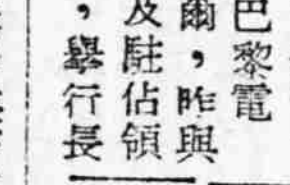 巴黎電
爾，昨與
及駐佔領
，舉行長